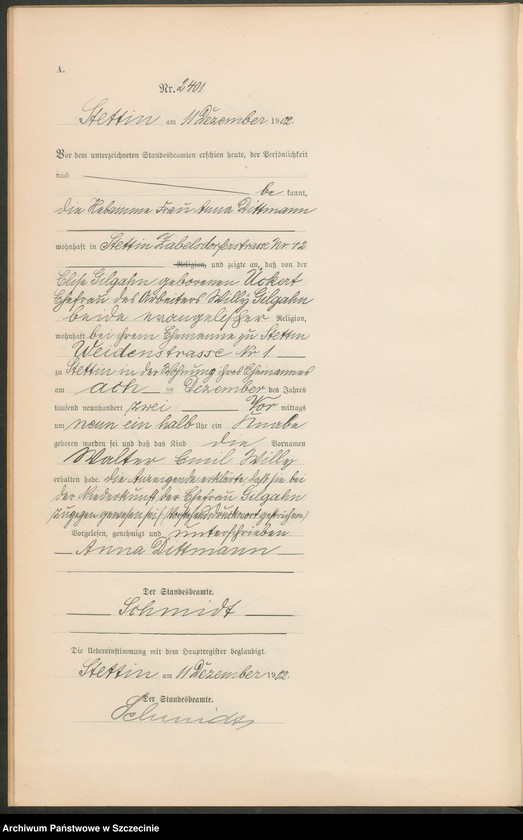 A.
Nr. 2401
Stettin am 11 Dezember 1902.
Vor dem unterzeichneten Standesbeamten erschien heute, der Persönlichkeit
nach
be kannt,
die Hebamme Frau Anna Dittmann
wohnhaft in Stettin Zabelsdorferstrasse Nr. 12
Religion, und zeigte an, daß von der
Elise Gilgahn geborenen Uckert
Ehefrau des Arbeiters Willy Gilgahn
beide evangelischer Religion,
wohnhaft bei ihrem Ehemanne zu Stettin
Weidenstrasse Nr 1
zu Stettin in der Wohnung ihres Ehemannes
am acht ten Dezember des Jahres
tausend neunhundert zwei Vor mittags
um neun ein halb Uhr ein Knabe
geboren worden sei und daß das Kind die Vornamen
Walter Emil Willy
erhalten habe. Die Anzeigende erklärte daß sie bei
der Niederkunft der Ehefrau Gilgahn
zugegen gewesen sei (Vorstehend Druckwort gestrichen)
Vorgelesen, genehmigt und unterschrieben
Anna Dittmann
Der Standesbeamte.
Schmidt
Die Uebereinstimmung mit dem Hauptregister beglaubigt.
Stettin am 11 Dezember 1902.
Der Standesbeamte.
Schmidt
Archiwum Państwowe w Szczecinie